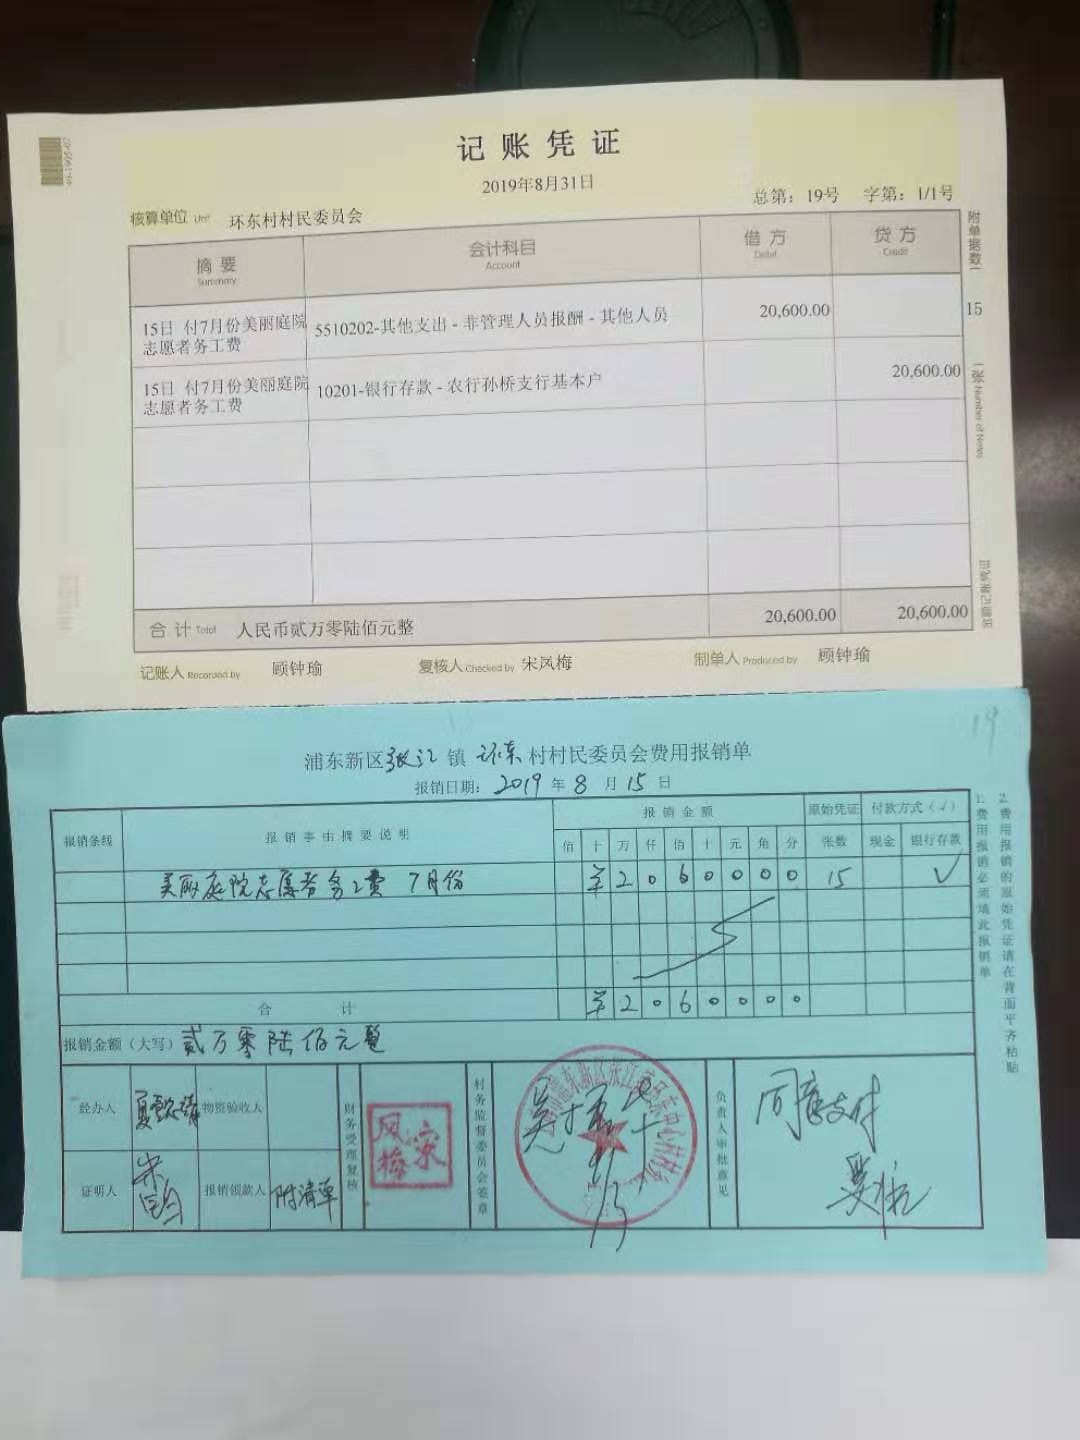 记账凭证
2019年8月31日
核算单位 Unit 环东村村民委员会
总第：19号 字第：1/1号
摘要 Summary 会计科目 Account 借方 Debit 贷方 Credit
附单据数
15
张 Number of Notes
15日 付7月份美丽庭院
志愿者务工费
5510202-其他支出 - 非管理人员报酬 - 其他人员 20,600.00
15日 付7月份美丽庭院
志愿者务工费
10201-银行存款 - 农行孙桥支行基本户 20,600.00
合计 Total 人民币贰万零陆佰元整 20,600.00 20,600.00
记账人 Recorded by 顾钟瑜 复核人 Checked by 宋凤梅 制单人 Produced by 顾钟瑜
19
浦东新区张江镇环东村村民委员会费用报销单
报销日期：2019年8月15日
报销条线 报销事由摘要说明 报销金额 原始凭证 付款方式（√）
佰 十 万 仟 佰 十 元 角 分 张数 现金 银行存款
美丽庭院志愿者务工费 7月份 ¥2060000 15 √
合计 ¥2060000
报销金额（大写）贰万零陆佰元整
经办人 物资验收人
证明人 报销领款人 附清单
财务受理复核
凤梅宋
村务监督委员会签章
负责人审批意见
同意支付
1.费用报销必须填此报销单
2.费用报销的原始凭证请在背面平齐粘贴